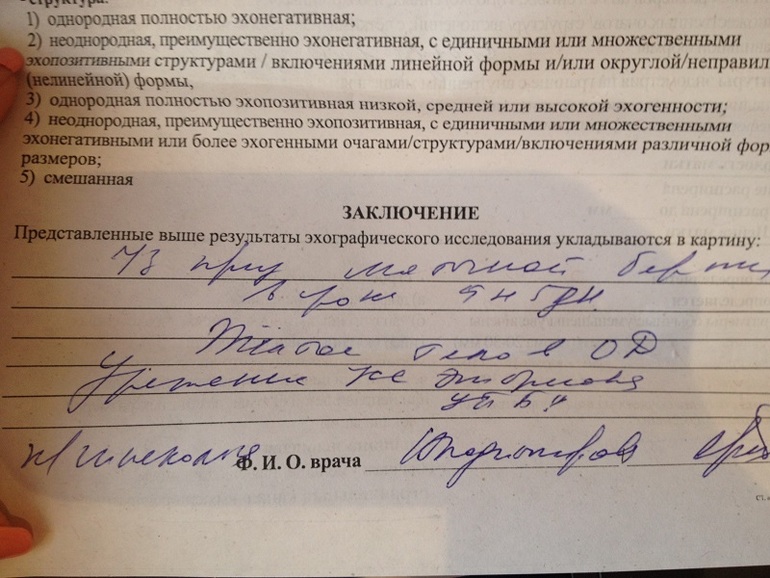 структура:
1) однородная полностью эхонегативная;
2) неоднородная, преимущественно эхонегативная, с единичными или множественными
эхопозитивными структурами / включениями линейной формы и/или округлой/неправил
(нелинейной) формы,
3) однородная полностью эхопозитивная низкой, средней или высокой эхогенности;
4) неоднородная, преимущественно эхопозитивная, с единичными или множественными
эхонегативными или более эхогенными очагами/структурами/включениями различной фор
размеров;
5) смешанная
ЗАКЛЮЧЕНИЕ
Представленные выше результаты эхографического исследования укладываются в картину:
УЗ пр маточной бер
в срок 5 н 5 дн
Желтое тело в ОД
Урежение ЧСС эмбриона
УПБ
Ф. И. О. врача